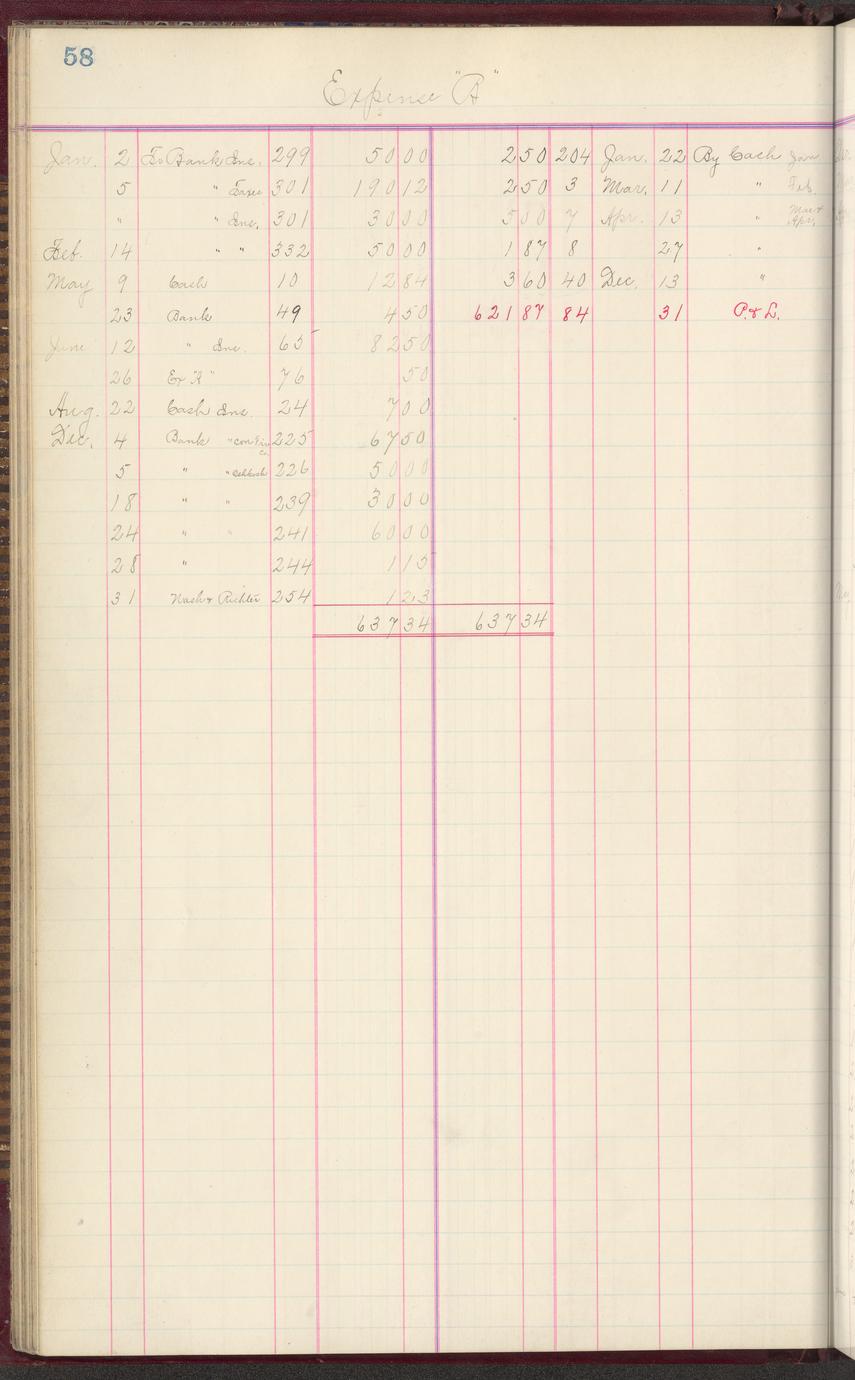 58
Expense "A"
Jan. 2 To Bank Ins. 299 50 00 2 50 204 Jan. 22 By Cash Jan
5 " Taxes 301 190 12 2 50 3 Mar. 11 " Feb.
" " Ins. 301 30 00 5 00 7 Apr. 13 " Mar & Apr.
Feb. 14 " " 332 50 00 1 87 8 27 "
May 9 Cash 10 12 84 3 60 40 Dec. 13 "
23 Bank 49 4 50 621 87 84 31 P. & L.
June 12 " Ins. 65 82 50
26 Ex "A" 76 50
Aug. 22 Cash Ins. 24 7 00
Dec. 4 Bank " 225 67 50
5 " " 226 50 00
18 " " 239 30 00
24 " " 241 60 00
28 " 244 1 15
31 Nash & Richter 254 1 23
637 34 637 34